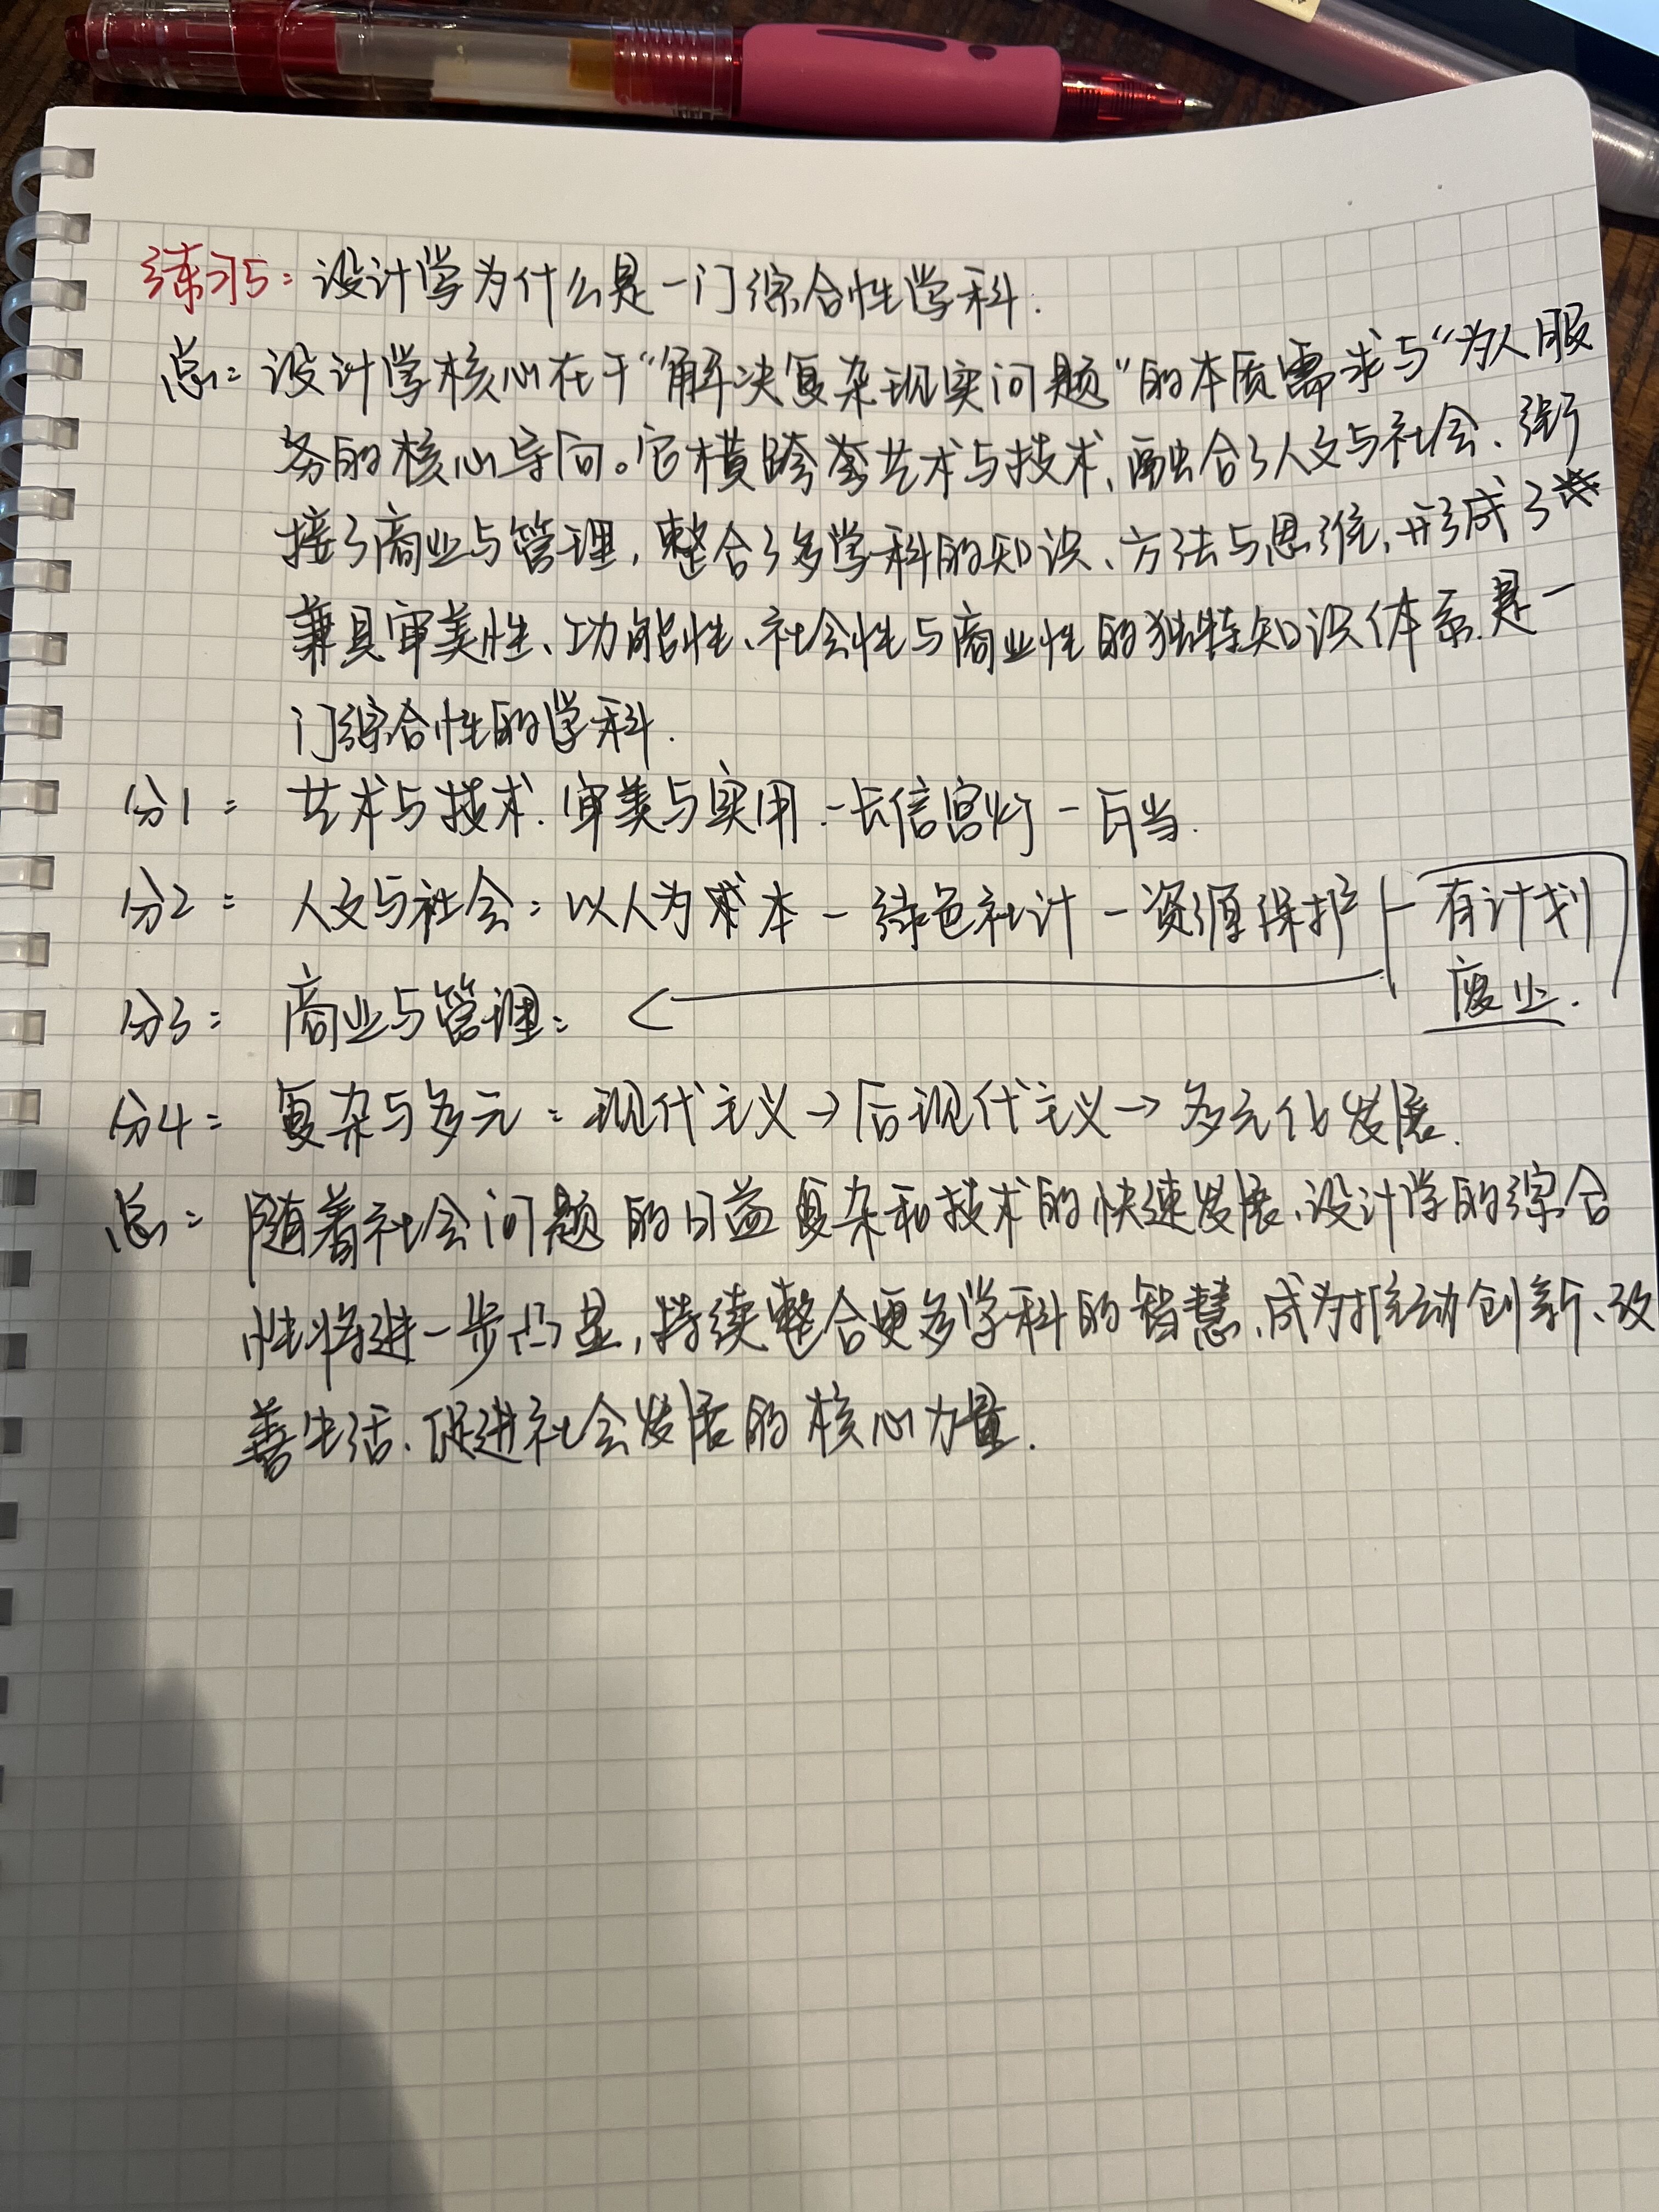 练习5：设计学为什么是一门综合性学科.
总：设计学核心在于“解决复杂现实问题”的本质需求与“为人服
务的核心导向。它横跨 艺术与技术、融合了人文与社会、衔
接了商业与管理，整合了多学科的知识、方法与思维，形成了
兼具审美性、功能性、社会性与商业性的独特知识体系.是一
门综合性的学科.
分1： 艺术与技术.审美与实用.-长信宫灯-瓦当.
分2： 人文与社会：以人为 本-绿色社计-资源保护 有计划
废止.
分3： 商业与管理：
分4：复杂与多元：现代主义→后现代主义→多元化发展.
总：随着社会问题的日益复杂和技术的快速发展、设计学的综合
性将进一步凸显，持续整合更多学科的智慧、成为推动创新、改
善生活、促进社会发展的核心力量.